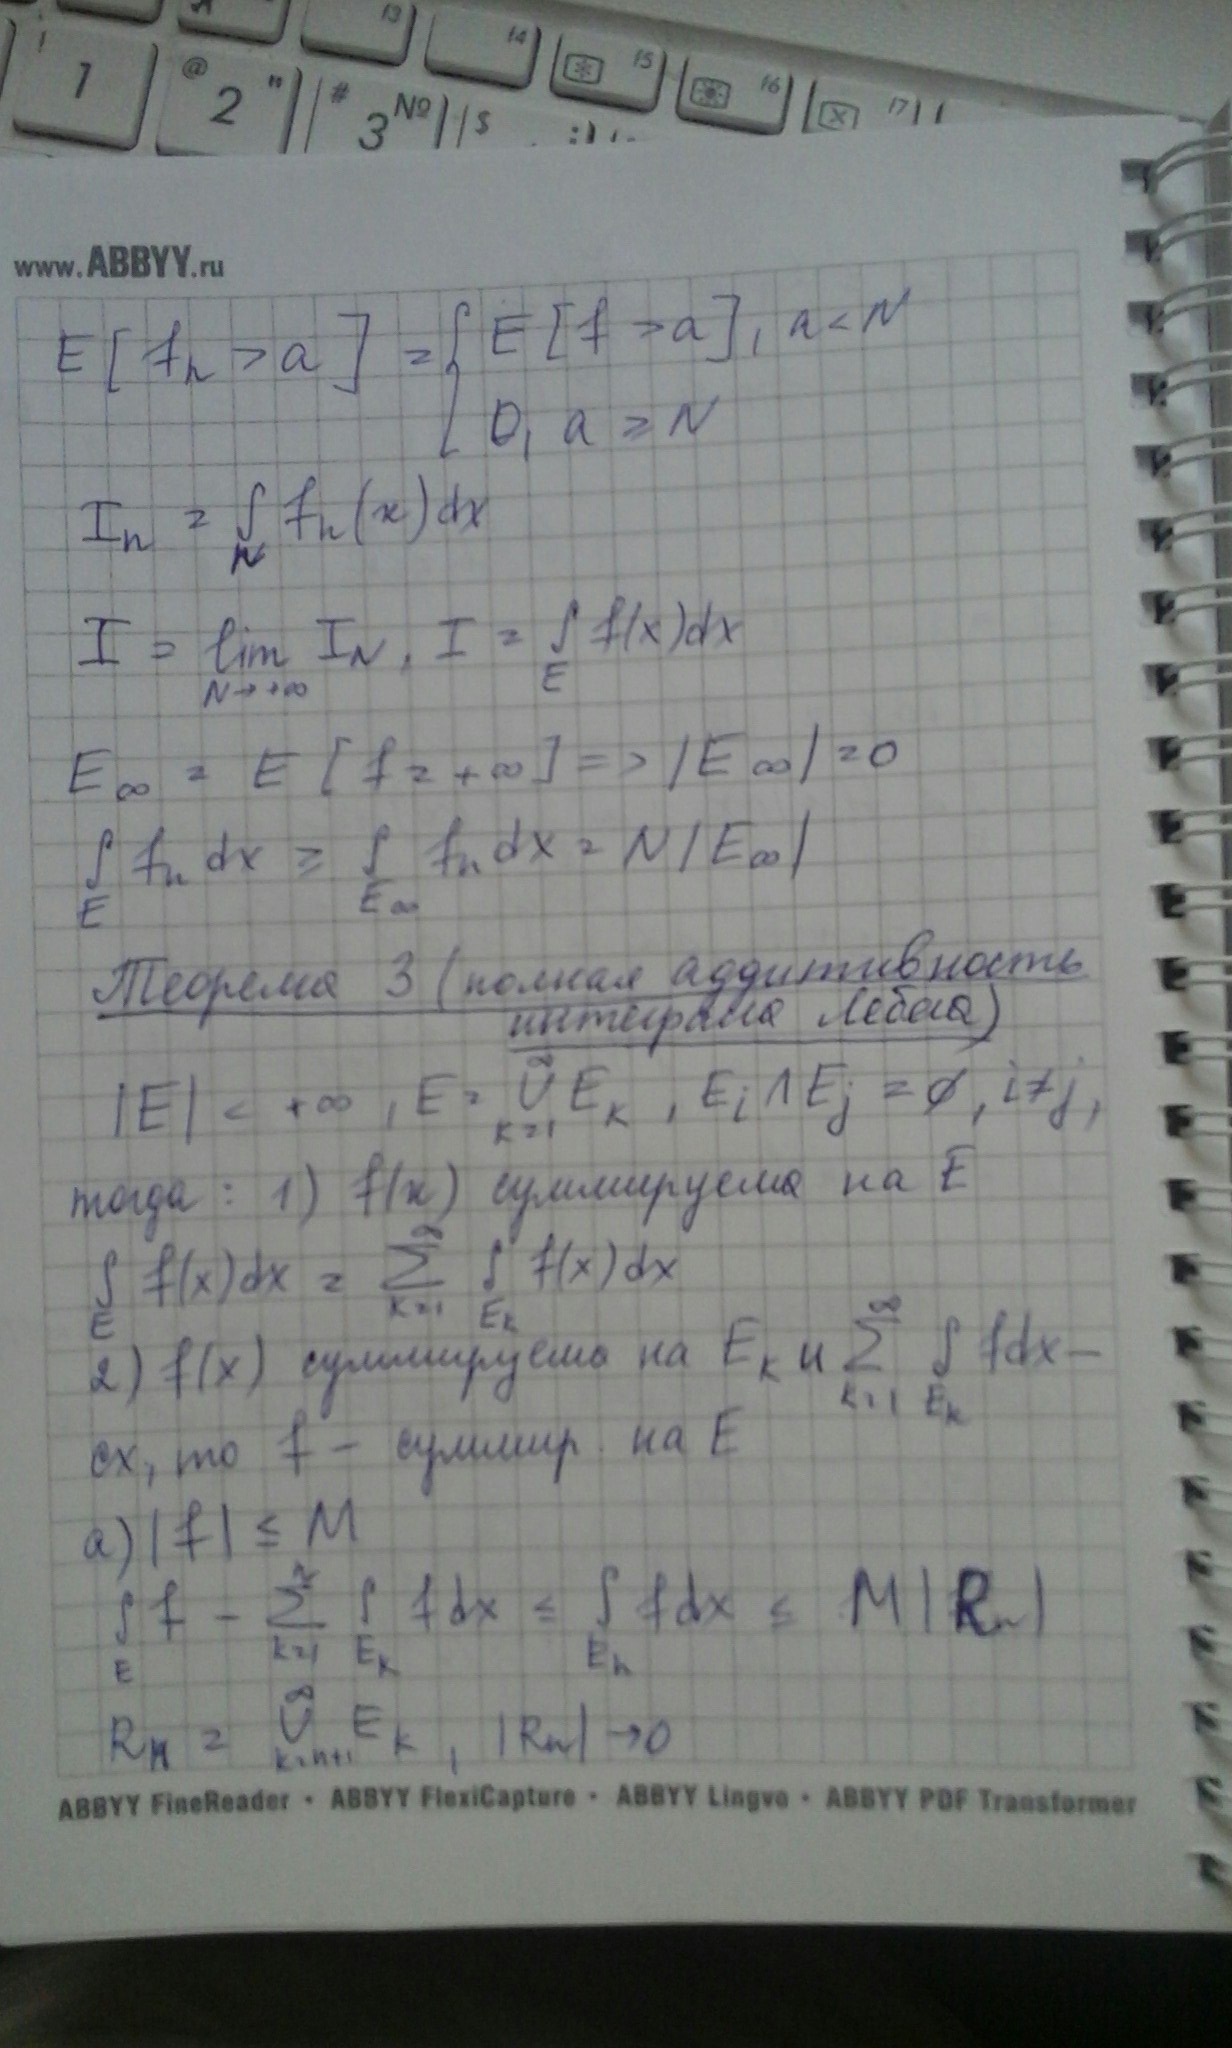 13 14 15 16 17
! 1 @ 2 " # 3 № $
www.ABBYY.ru
E[fₙ > a] = { E[f > a], a < N
0, a ≥ N
Iₙ = ∫_N fₙ(x)dx
I = lim_{N→+∞} I_N, I = ∫_E f(x)dx
E_∞ = E[f = +∞] => |E_∞| = 0
∫_E fₙ dx ≥ ∫_{E_∞} fₙ dx = N|E_∞|
Теорема 3 (полная аддитивность
интеграла Лебега)
|E| < +∞, E = ∪_{k=1}^∞ E_k, E_i ∩ E_j = ∅, i ≠ j,
тогда: 1) f(x) суммируема на E
∫_E f(x)dx = ∑_{k=1}^∞ ∫_{E_k} f(x)dx
2) f(x) суммируема на E_k и ∑_{k=1}^∞ ∫_{E_k} fdx –
сх, то f – суммир. на E
а) |f| ≤ M
∫_E f – ∑_{k=1}^n ∫_{E_k} fdx ≤ ∫_{Eₙ} fdx ≤ M|Rₙ|
Rₙ = ∪_{k=n+1}^∞ E_k, |Rₙ| → 0
ABBYY FineReader • ABBYY FlexiCapture • ABBYY Lingvo • ABBYY PDF Transformer